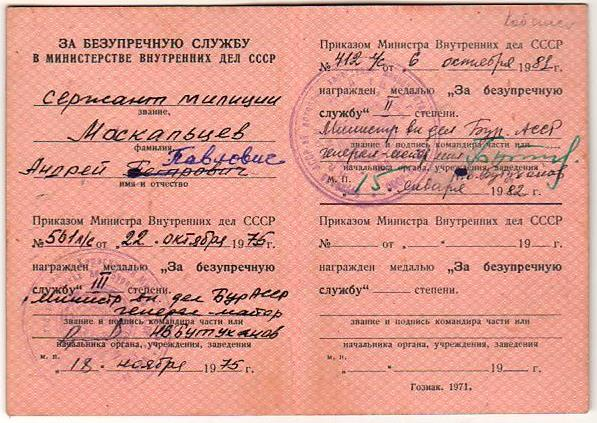 ЗА БЕЗУПРЕЧНУЮ СЛУЖБУ
В МИНИСТЕРСТВЕ ВНУТРЕННИХ ДЕЛ СССР
сержант милиции
звание,
Москальцев
фамилия,
Андрей Петрович Павлович
имя и отчество
Приказом Министра Внутренних дел СССР
№ 561 л/с от „ 22 „ октября 1975 г.
награжден медалью „За безупречную
службу“ III степени.
Министр вн. дел Бур АССР
генерал-майор
звание и подпись командира части или
начальника органа, учреждения, заведения
м. п.
„ 18 „ ноября 1975 г.
Приказом Министра Внутренних дел СССР
№ 412 л/с от „ 6 „ октября 1981 г.
награжден медалью „За безупречную
службу“ II степени.
Министр вн дел Бур. АССР
звание и подпись командира части или
генерал-
начальника органа, учреждения, заведения
м. п.
15 января 1982 г.
Приказом Министра Внутренних дел СССР
№ от „ “ 19 г.
награжден медалью „За безупречную
службу“ степени.
звание и подпись командира части или
начальника органа, учреждения, заведения
м. п.
„ “ 19 г.
Гознак. 1971.